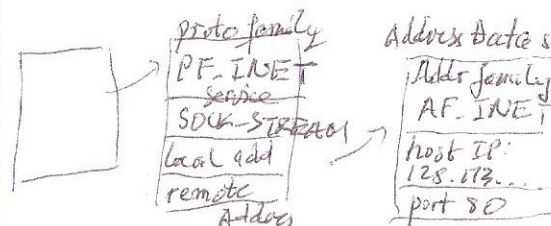 proto family
PF_INET
service
SOCK_STREAM
local add
remote
Addres
Address Data s
Addr family
AF_INET
host IP:
128.173....
port 80